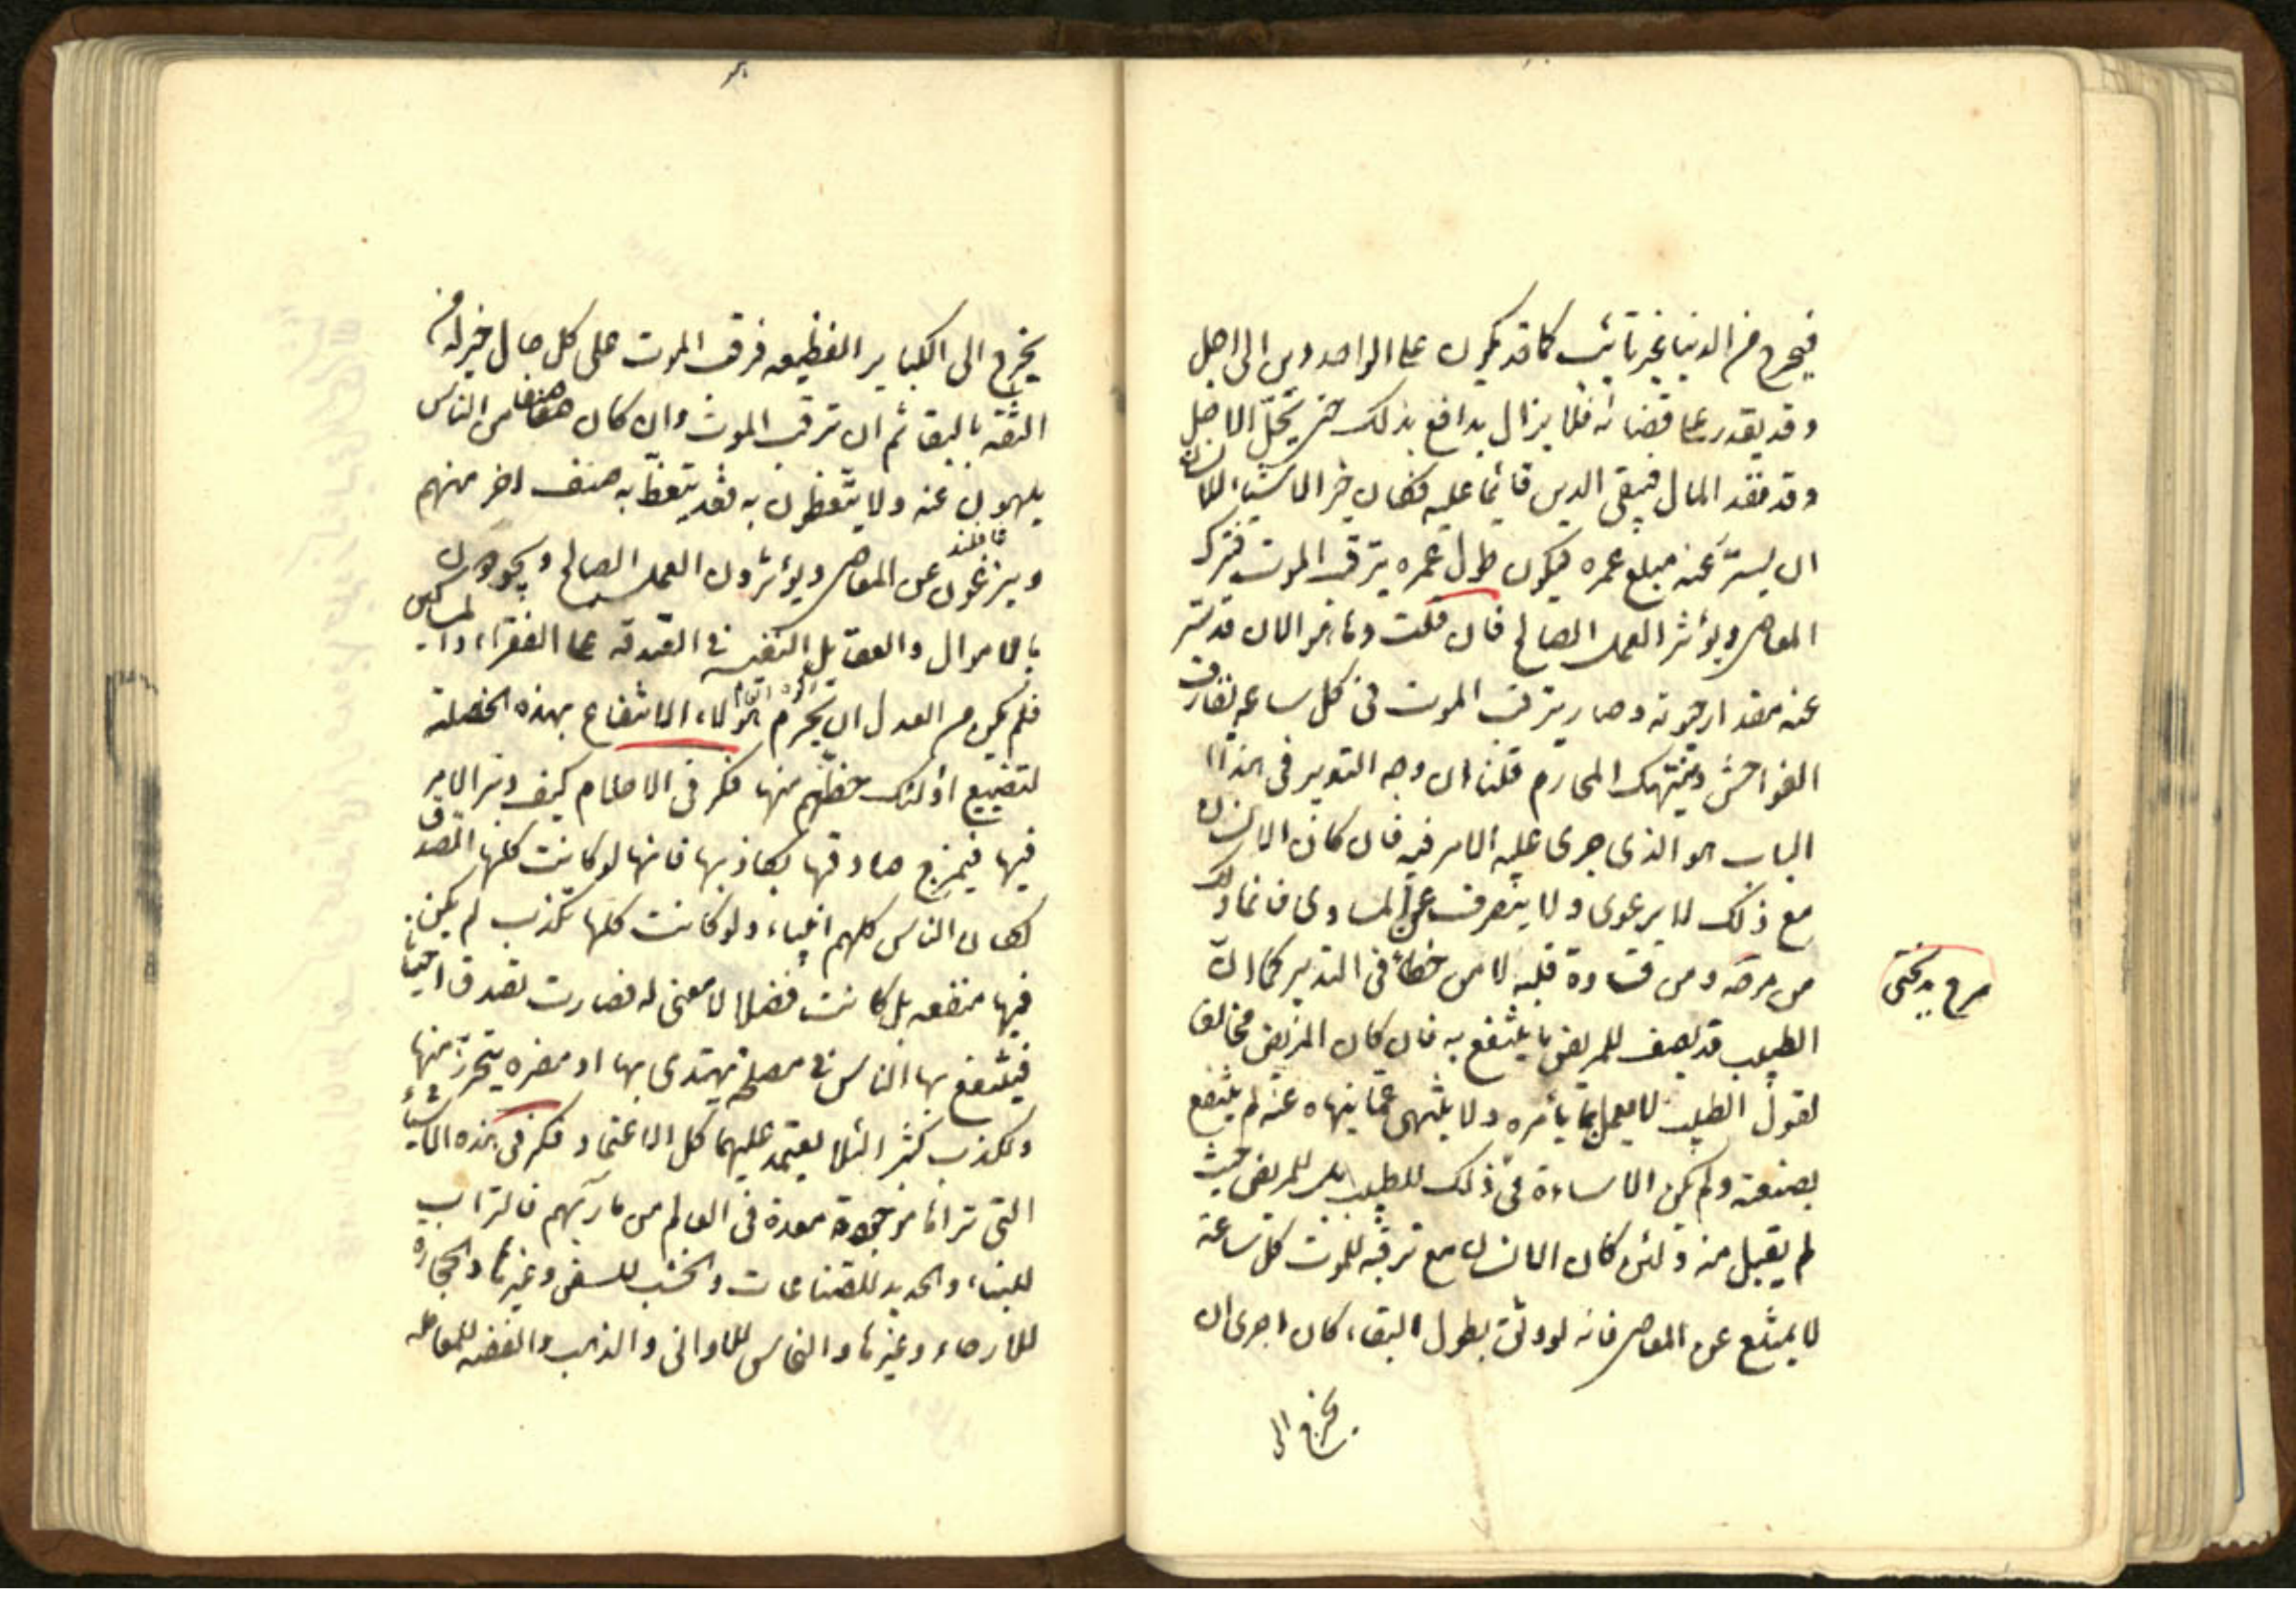 فيخرج من الدنيا غير تائب كما قد يكون على الواحد دين الى اجل
وقد يقدر على قضائه فلا يزال يدافع بذلك حتى يحلّ الاجل
وقد نفد المال فيبقى الدين قائما عليه فكان خير الاشياء للانسان
ان يستر عنه مبلغ عمره فيكون طول عمره يترقب الموت فيترك
المعاصى ويؤثر العمل الصالح فان قلت وها هو الان قد ستر
عنه مقدار حيوته وصار يترقب الموت فى كل ساعه يقارف
الفواحش وينتهك المحارم قلنا ان وجه التدبير فى هذا
الباب هو الذى جرى عليه الامر فيه فان كان الانسان
مع ذلك لا يرعوى ولا ينصرف عن المساوى فانما ذلك
من مرحه ومن قساوة قلبه لا من خطاء فى التدبير كما انّ
الطبيب قد يصف للمريض ما ينتفع به فان كان المريض مخالفا
لقول الطبيب لا يعمل بما يأمره ولا ينتهى عمّا ينهاه عنه لم ينتفع
بصفته ولم يكن الاساءة فى ذلك للطبيب بل للمريض حيث
لم يقبل منه ولئن كان الانسان مع ترقبه للموت كل ساعة
لا يمتنع عن المعاصى فانه لو وثق بطول البقاء كان احرى ان
يخرج الى
يخرج الى الكبائر الفظيعه فترقب الموت على كل حال خير له من
الثقه بالبقا ثم ان ترقب الموت وان كان صنف من الناس
يلهون عنه ولا يتعظون به فقد يتعظ به صنف اخر منهم
وينزعون عن المعاصى ويؤثرون العمل الصالح ويجودون
بالاموال والعقائل النفيسه فى الصدقه على الفقراء والمساكين
فلم يكن من العدل ان يحرم هؤلاء الانتفاع بهذه الخصلة
لتضييع اولئك حظهم منها فكر فى الاحلام كيف دبر الامر
فيها فيمزج صادقها بكاذبها فانها لو كانت كلها تصدق
لكان الناس كلهم انبياء ولو كانت كلها تكذب لم يكن
فيها منفعه بل كانت فضلا لا معنى له فصارت تصدق احيانا
فينتفع بها الناس فى مصلحة يهتدى بها او مضره يتحرّز منها
وتكذب كثيرا لئلا يعتمد عليها كل الاعتماد فكر فى هذه الاشياء
التى تراها موجودة معدة فى العالم من مآربهم فالتراب
للبناء والحديد للصناعات والخشب للسفن وغيرها والحجارة
للارحاء وغيرها والنحاس للاوانى والذهب والفضه للمعامله